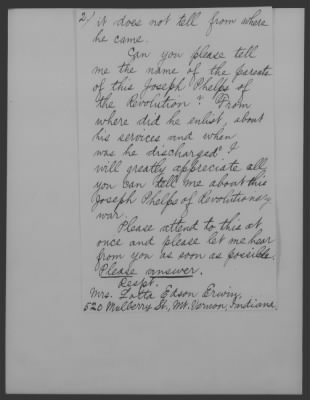 2/ it does not tell from where
he came.
Can you please tell
me the name of the parents
of this Joseph Phelps of
the Revolution? From
where did he enlist, about
his services and when
was he discharged? I
will greatly appreciate all
you can tell me about this
Joseph Phelps of Revolutionary
war.
Please attend to this at
once and please let me hear
from you as soon as possible.
Please answer.
Respt.
Mrs. Lotta Edson Erwin,
520 Mulberry St., Mt. Vernon, Indiana.